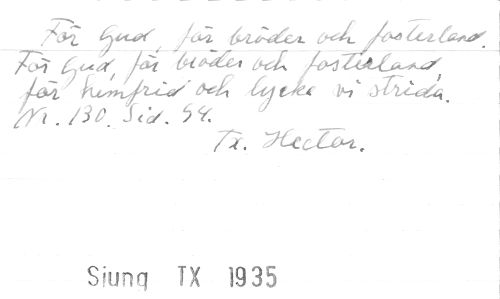 För Gud, för bröder och fosterland.
För Gud, för bröder och fosterland,
för hemfrid och lycka vi strida.
Nr. 130. Sid. 54.
Tx. Hector.
Sjung TX 1935